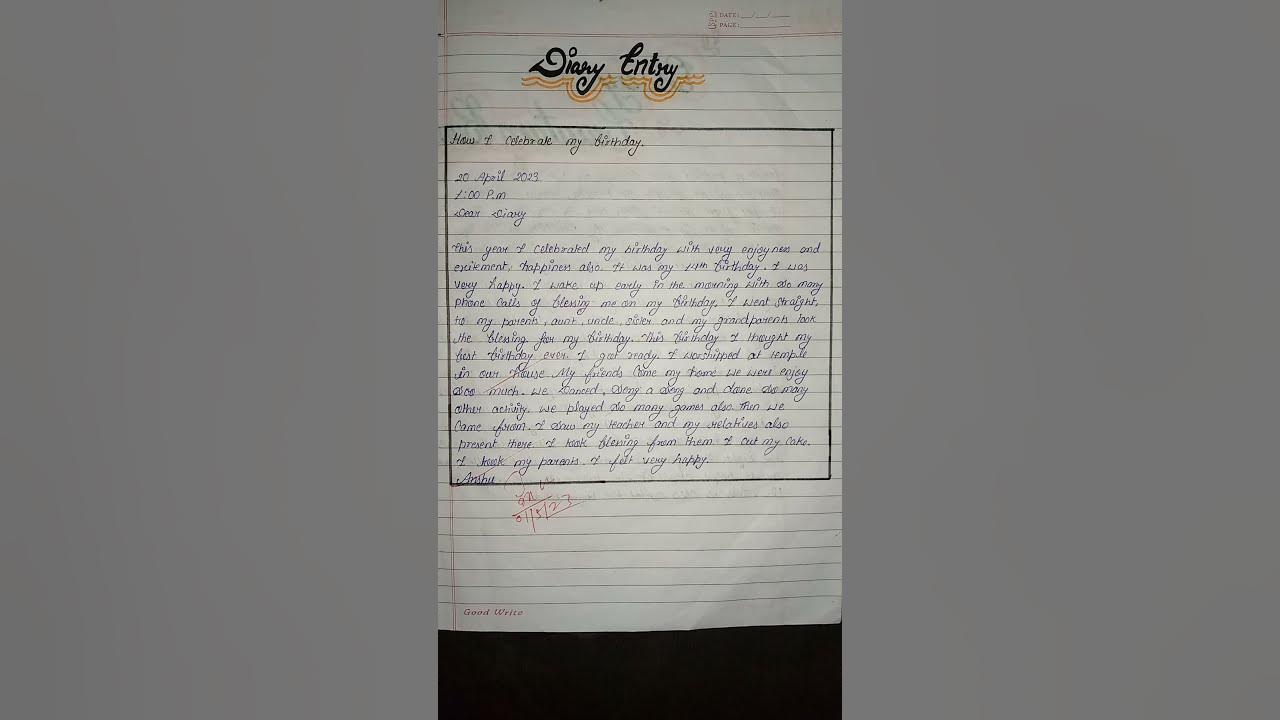 DATE: __/__/__
PAGE:
Diary Entry
How I Celebrate my birthday.
20 April 2023
1:00 P.m
Dear Diary
This year I celebrated my birthday with very enjoyness and
exitement, happiness also. It was my 14th birthday. I was
very happy. I wake up early in the morning with so many
phone calls of blessing me on my birthday. I went straight,
to my parents, aunt, uncle, sister and my grandparents took
the blessing for my birthday. This birthday I thought my
best birthday ever. I got ready. I worshipped at temple
in our house. My friends Come my home we were enjoy
Soo much. we Danced, Seng a Song and done So many
other activity. we played So many games also. then we
Came from. I Saw my teacher and my relatives also
present there. I took blessing from them I cut my Cake.
I took my parents. I felt very happy.
Anshu
01/5/23
Good Write